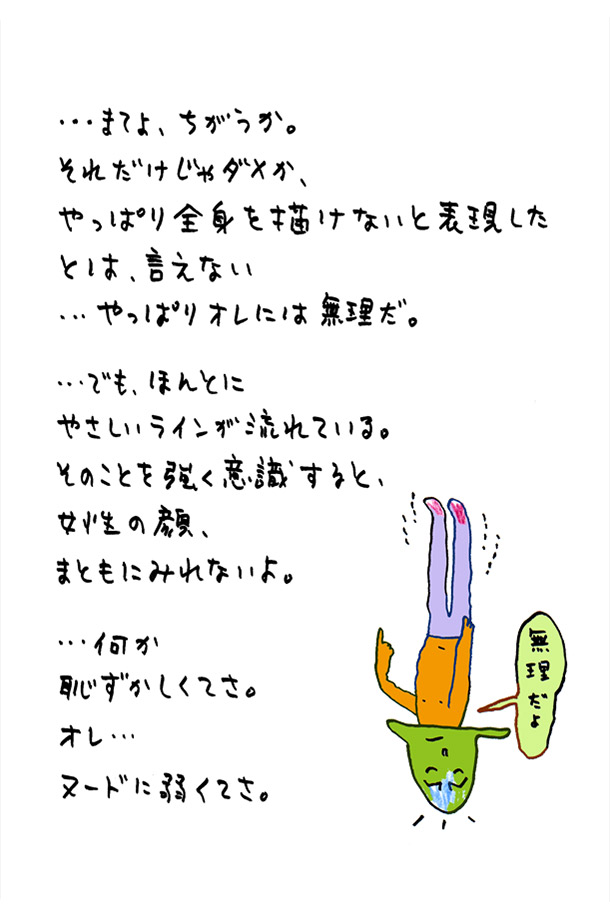 …まてよ、ちがうか。
それだけじゃダメか、
やっぱり全身を描けないと表現した
とは、言えない
…やっぱりオレには無理だ。
…でも、ほんとに
やさしいラインが流れている。
そのことを強く意識すると、
女性の顔、
まともにみれないよ。
…何か
恥ずかしくてさ。
オレ…
ヌードに弱くてさ。
無理だよ